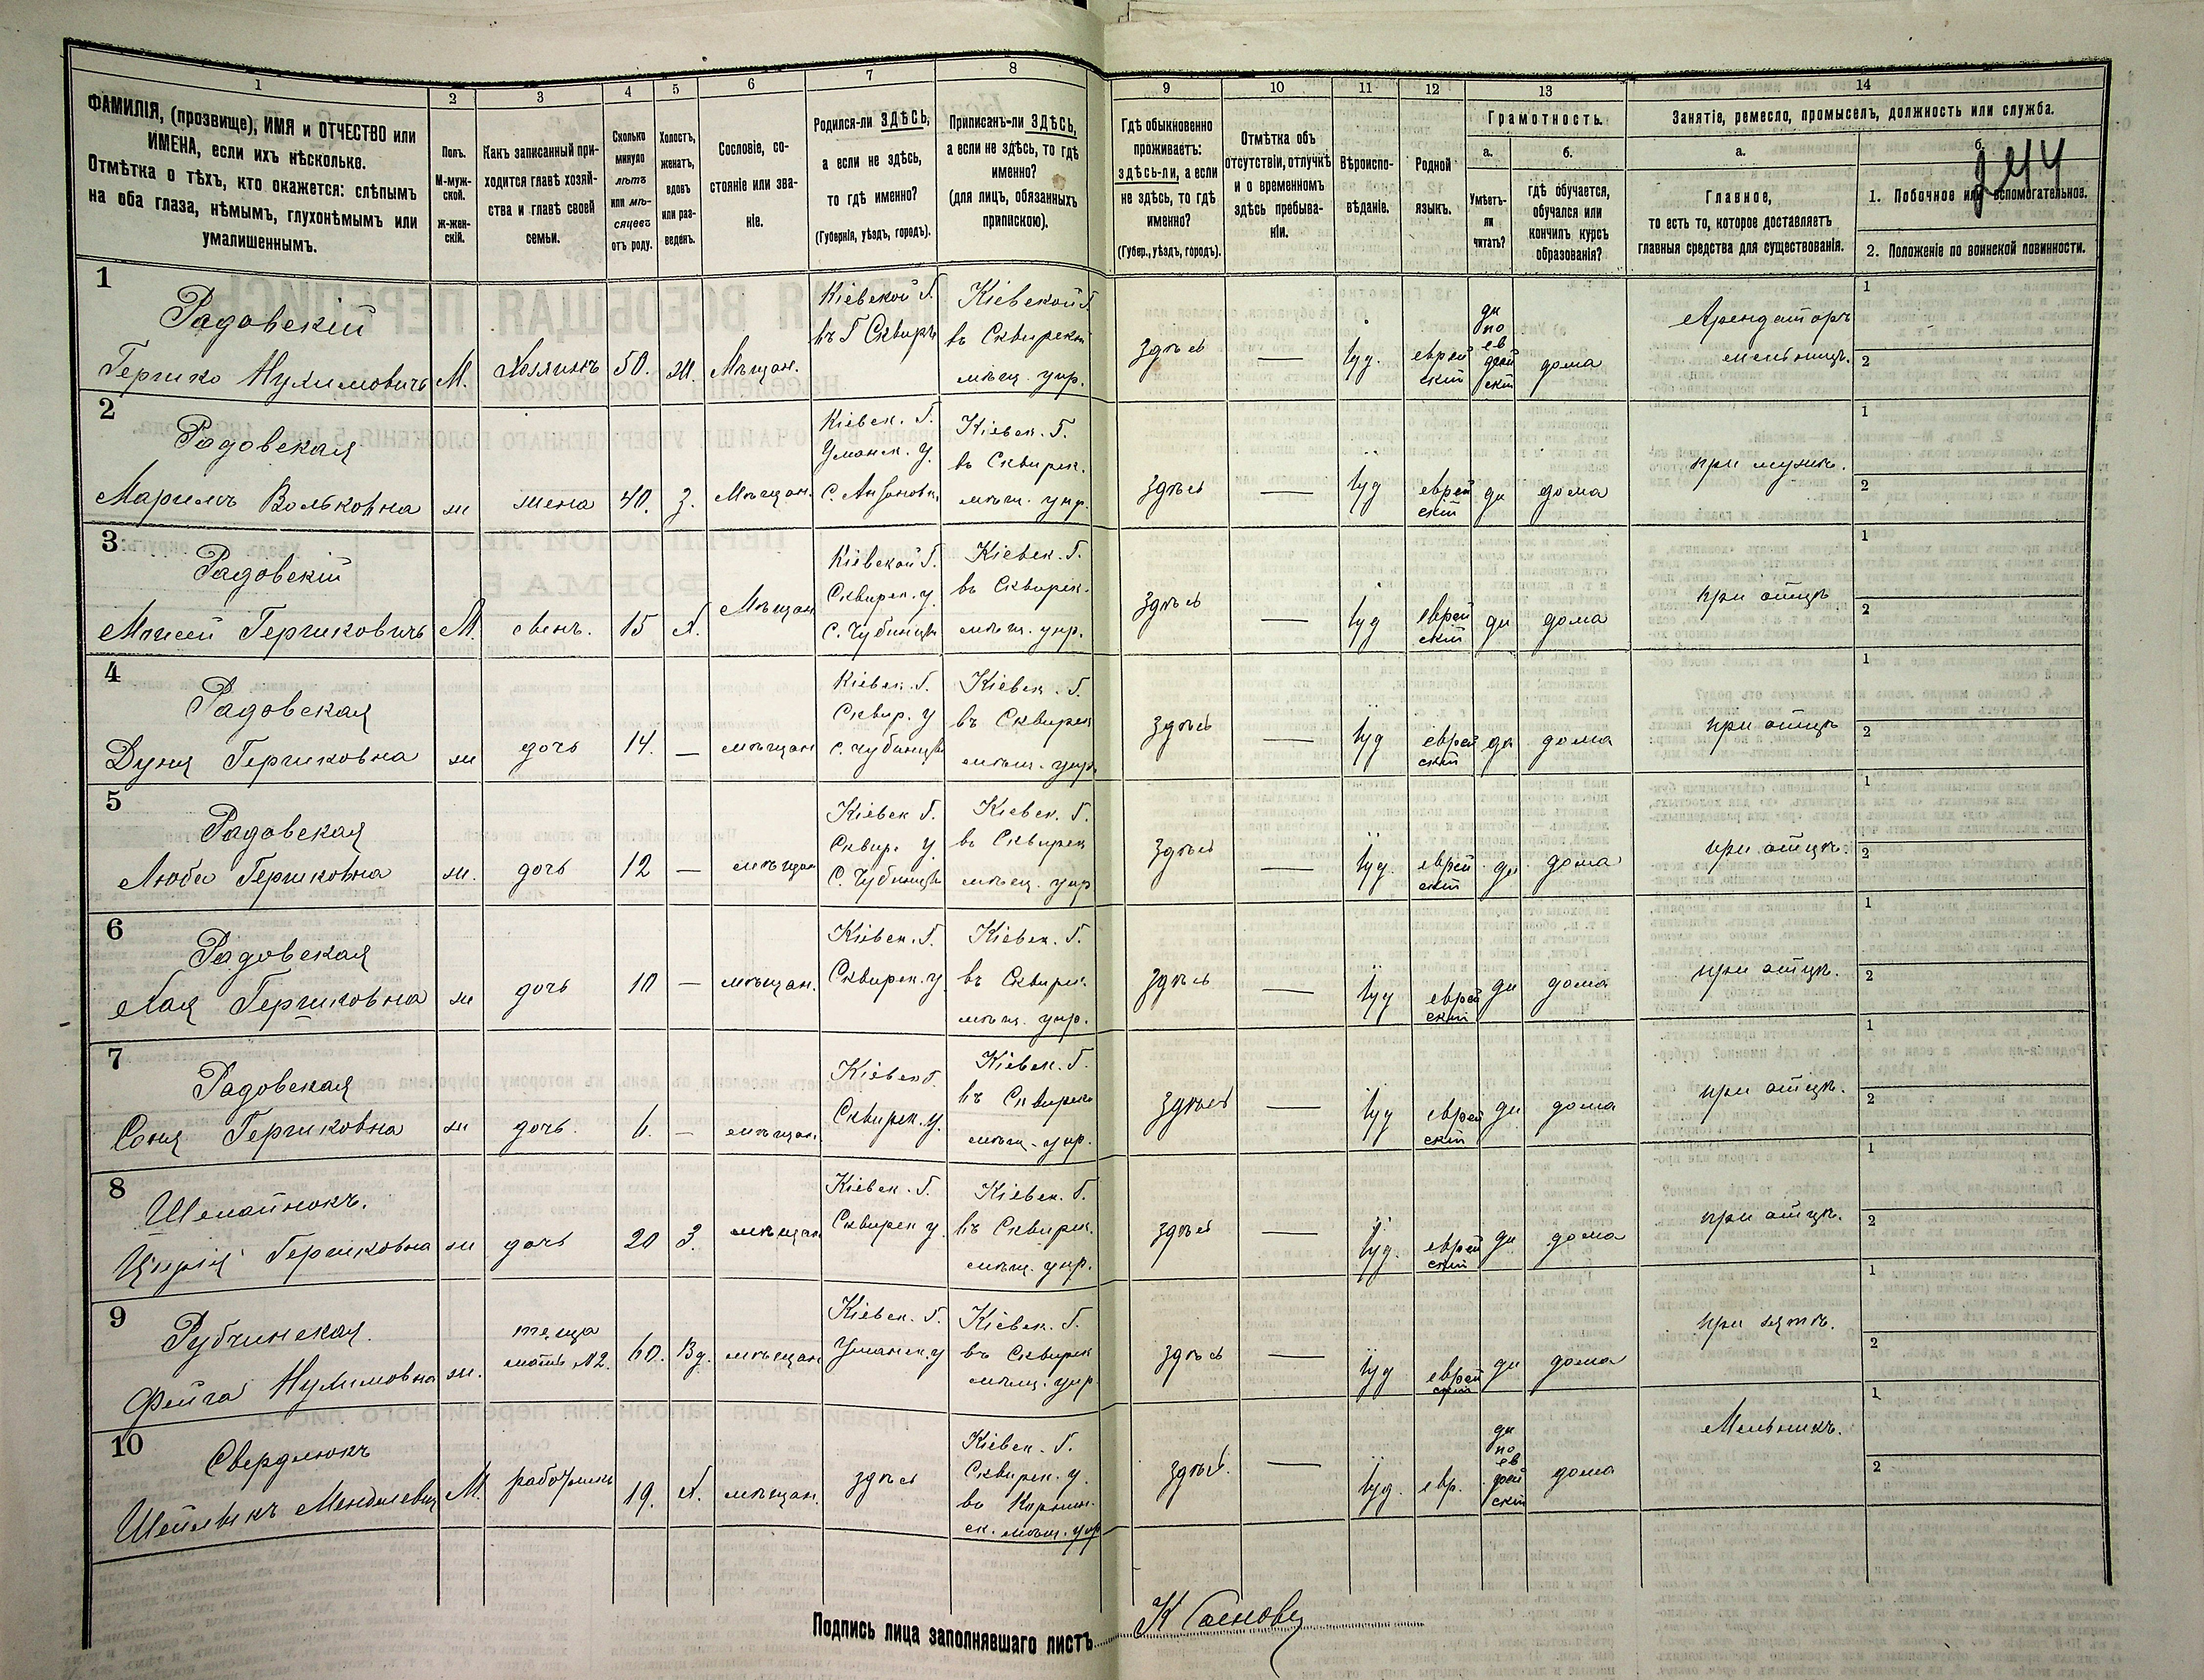 1 2 3 4 5 6 7 8 9 10 11 12 13 14
ФАМИЛІЯ, (прозвище), ИМЯ и ОТЧЕСТВО или
ИМЕНА, если ихъ нѣсколько.
Отмѣтка о тѣхъ, кто окажется: слѣпымъ
на оба глаза, нѣмымъ, глухонѣмымъ или
умалишеннымъ.
Полъ.
М-муж-
ской.
ж-жен-
скій.
Какъ записанный при-
ходится главѣ хозяй-
ства и главѣ своей
семьи.
Сколько
минуло
лѣтъ
или мѣ-
сяцевъ
отъ роду.
Холостъ,
женатъ,
вдовъ
или раз-
веденъ.
Сословіе, со-
стояніе или зва-
ніе.
Родился-ли ЗДѢСЬ,
а если не здѣсь,
то гдѣ именно?
(Губернія, уѣздъ, городъ).
Приписанъ-ли ЗДѢСЬ,
а если не здѣсь, то гдѣ
именно?
(для лицъ, обязанныхъ
припискою).
Гдѣ обыкновенно
проживаетъ:
здѣсь-ли, а если
не здѣсь, то гдѣ
именно?
(Губер., уѣздъ, городъ).
Отмѣтка объ
отсутствіи, отлучкѣ
и о временномъ
здѣсь пребыва-
ніи.
Вѣроиспо-
вѣданіе.
Родной
языкъ.
Грамотность.
а.
Умѣетъ-
ли
читать?
б.
гдѣ обучается,
обучался или
кончилъ курсъ
образованія?
Занятіе, ремесло, промыселъ, должность или служба.
а.
Главное,
то есть то, которое доставляетъ
главныя средства для существованія.
б.
1. Побочное или вспомогательное.
2. Положеніе по воинской повинности.
244
1
Радовскій
Гершко Нухимовичъ М. Хозяинъ 50. ж. Мѣщан.
Кіевской Г.
въ Г Сквирѣ
Кіевской Г.
въ Сквирской
мѣщ. упр.
здѣсь — Іуд. еврей
ский
да
по
ев
рей
ски
дома
Арендаторъ
мельницъ.
1
2
2
Радовская
Маримъ Вольковна ж жена 40. З. Мѣщан.
Кіевск. Г.
Уманск. У.
С. Антоновк.
Кіевск. Г.
въ Сквирск.
мѣщ. упр.
здѣсь — Іуд еврей
скій
да дома при мужѣ.
1
2
3
Радовскій
Моисей Гершковичъ М. сынъ. 15 Х. Мѣщан
Кіевской Г.
Сквирск. у.
С. Чубинцы
Кіевск. Г.
въ Сквирск.
мѣщ. упр.
здѣсь — Іуд еврей
скій
да дома при отцѣ
1
2
4
Радовская
Дуня Гершковна ж дочь 14. — мѣщан
Кіевск. Г.
Сквир. у
С. Чубинцы
Кіевск. Г.
въ Сквирск
мѣщ. упр.
здѣсь — Іуд еврей
скій
да дома при отцѣ
1
2
5
Радовская
Люба Гершковна ж. дочь 12 — мѣщан
Кіевск Г.
Сквир. У.
С. Чубинцы
Кіевск. Г.
въ Сквирск
мѣщ. упр
здѣсь — Іуд. еврей
скій
да дома при отцѣ.
1
2
6
Радовская
Хая Гершковна ж дочь 10 — мѣщан.
Кіевск. Г.
Сквирск. у
Кіевск. Г.
въ Сквирск.
мѣщ. упр.
здѣсь — Іуд еврей
скій
да дома при отцѣ.
1
2
7
Радовская
Соня Гершковна ж дочь. 6. — мѣщан.
Кіевск Г.
Сквирск. у.
Кіевск. Г.
въ Сквирск
мѣщ. упр.
здѣсь — Іуд еврей
скій
да дома при отцѣ.
1
2
8
Гершковна ж дочь 20 З. мѣщан
Кіевск. Г.
Сквирск у.
Кіевск. Г.
въ Сквирск.
мѣщ. упр.
здѣсь — Іуд. еврей
скій
да дома при отцѣ.
1
2
9
Рубчинская.
Фейга Нухимовна ж.
теща
мать №2.
60. Вд. мѣщан
Кіевск. Г.
Уманск. у
Кіевск. Г.
въ Сквирск
мѣщ. упр
здѣсь — Іуд еврей
скій
да дома при зятѣ.
1
2
10
Свердлюкъ
Менделевич М. работникъ 19. Х. мѣщан. здѣсь
Кіевск. Г.
Сквирск. у.
въ Корнин.
ск. мѣщ. упр
здѣсь. — Іуд. евр.
да
по
ев
рей
ски
дома Мельникъ.
1
2
Подпись лица заполнявшаго листъ